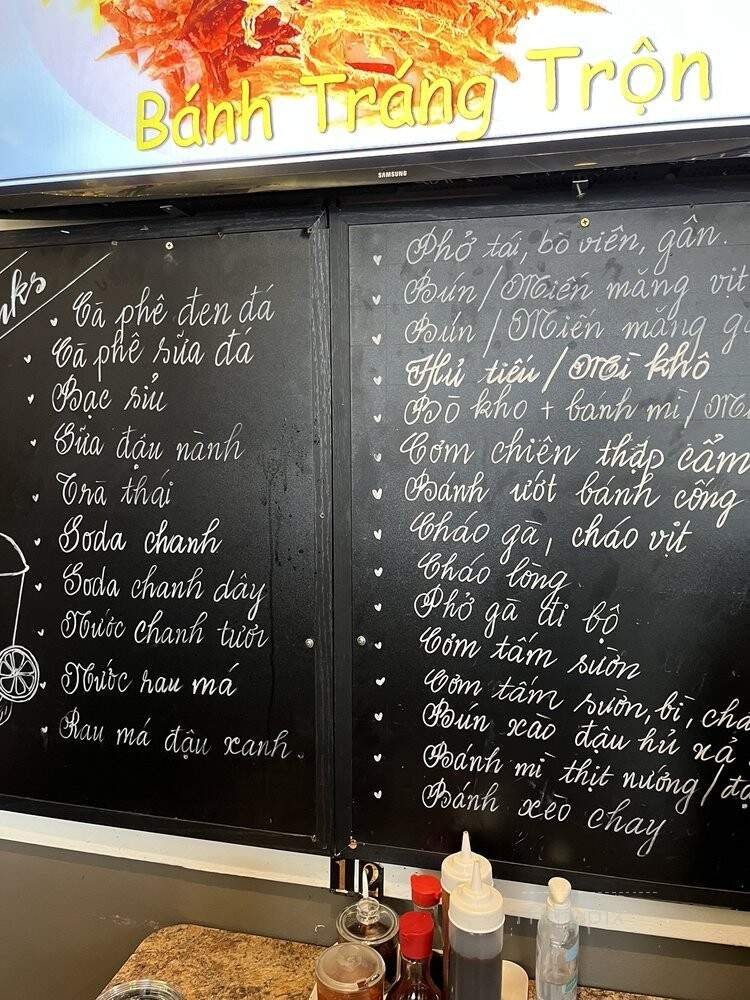 Bánh Tráng Trộn
SAMSUNG
Cà phê đen đá
Cà phê sữa đá
Bạc sỉu
Sữa đậu nành
Trà thái
Soda chanh
Soda chanh dây
Nước chanh tươi
Nước rau má
Rau má đậu xanh.
Phở tái, bò viên, gân.
Bún/Miến măng vịt
Bún/Miến măng g
Hủ tiếu/Mì khô
Bò kho + bánh mì/M
Cơm chiên thập cẩm
Bánh ướt bánh cống
Cháo gà, cháo vịt
Cháo lòng
Phở gà đi bộ
Cơm tấm sườn
Cơm tấm sườn, bì, chả
Bún xào đậu hủ xả
Bánh mì thịt nướng/đ
Bánh xèo chay
12